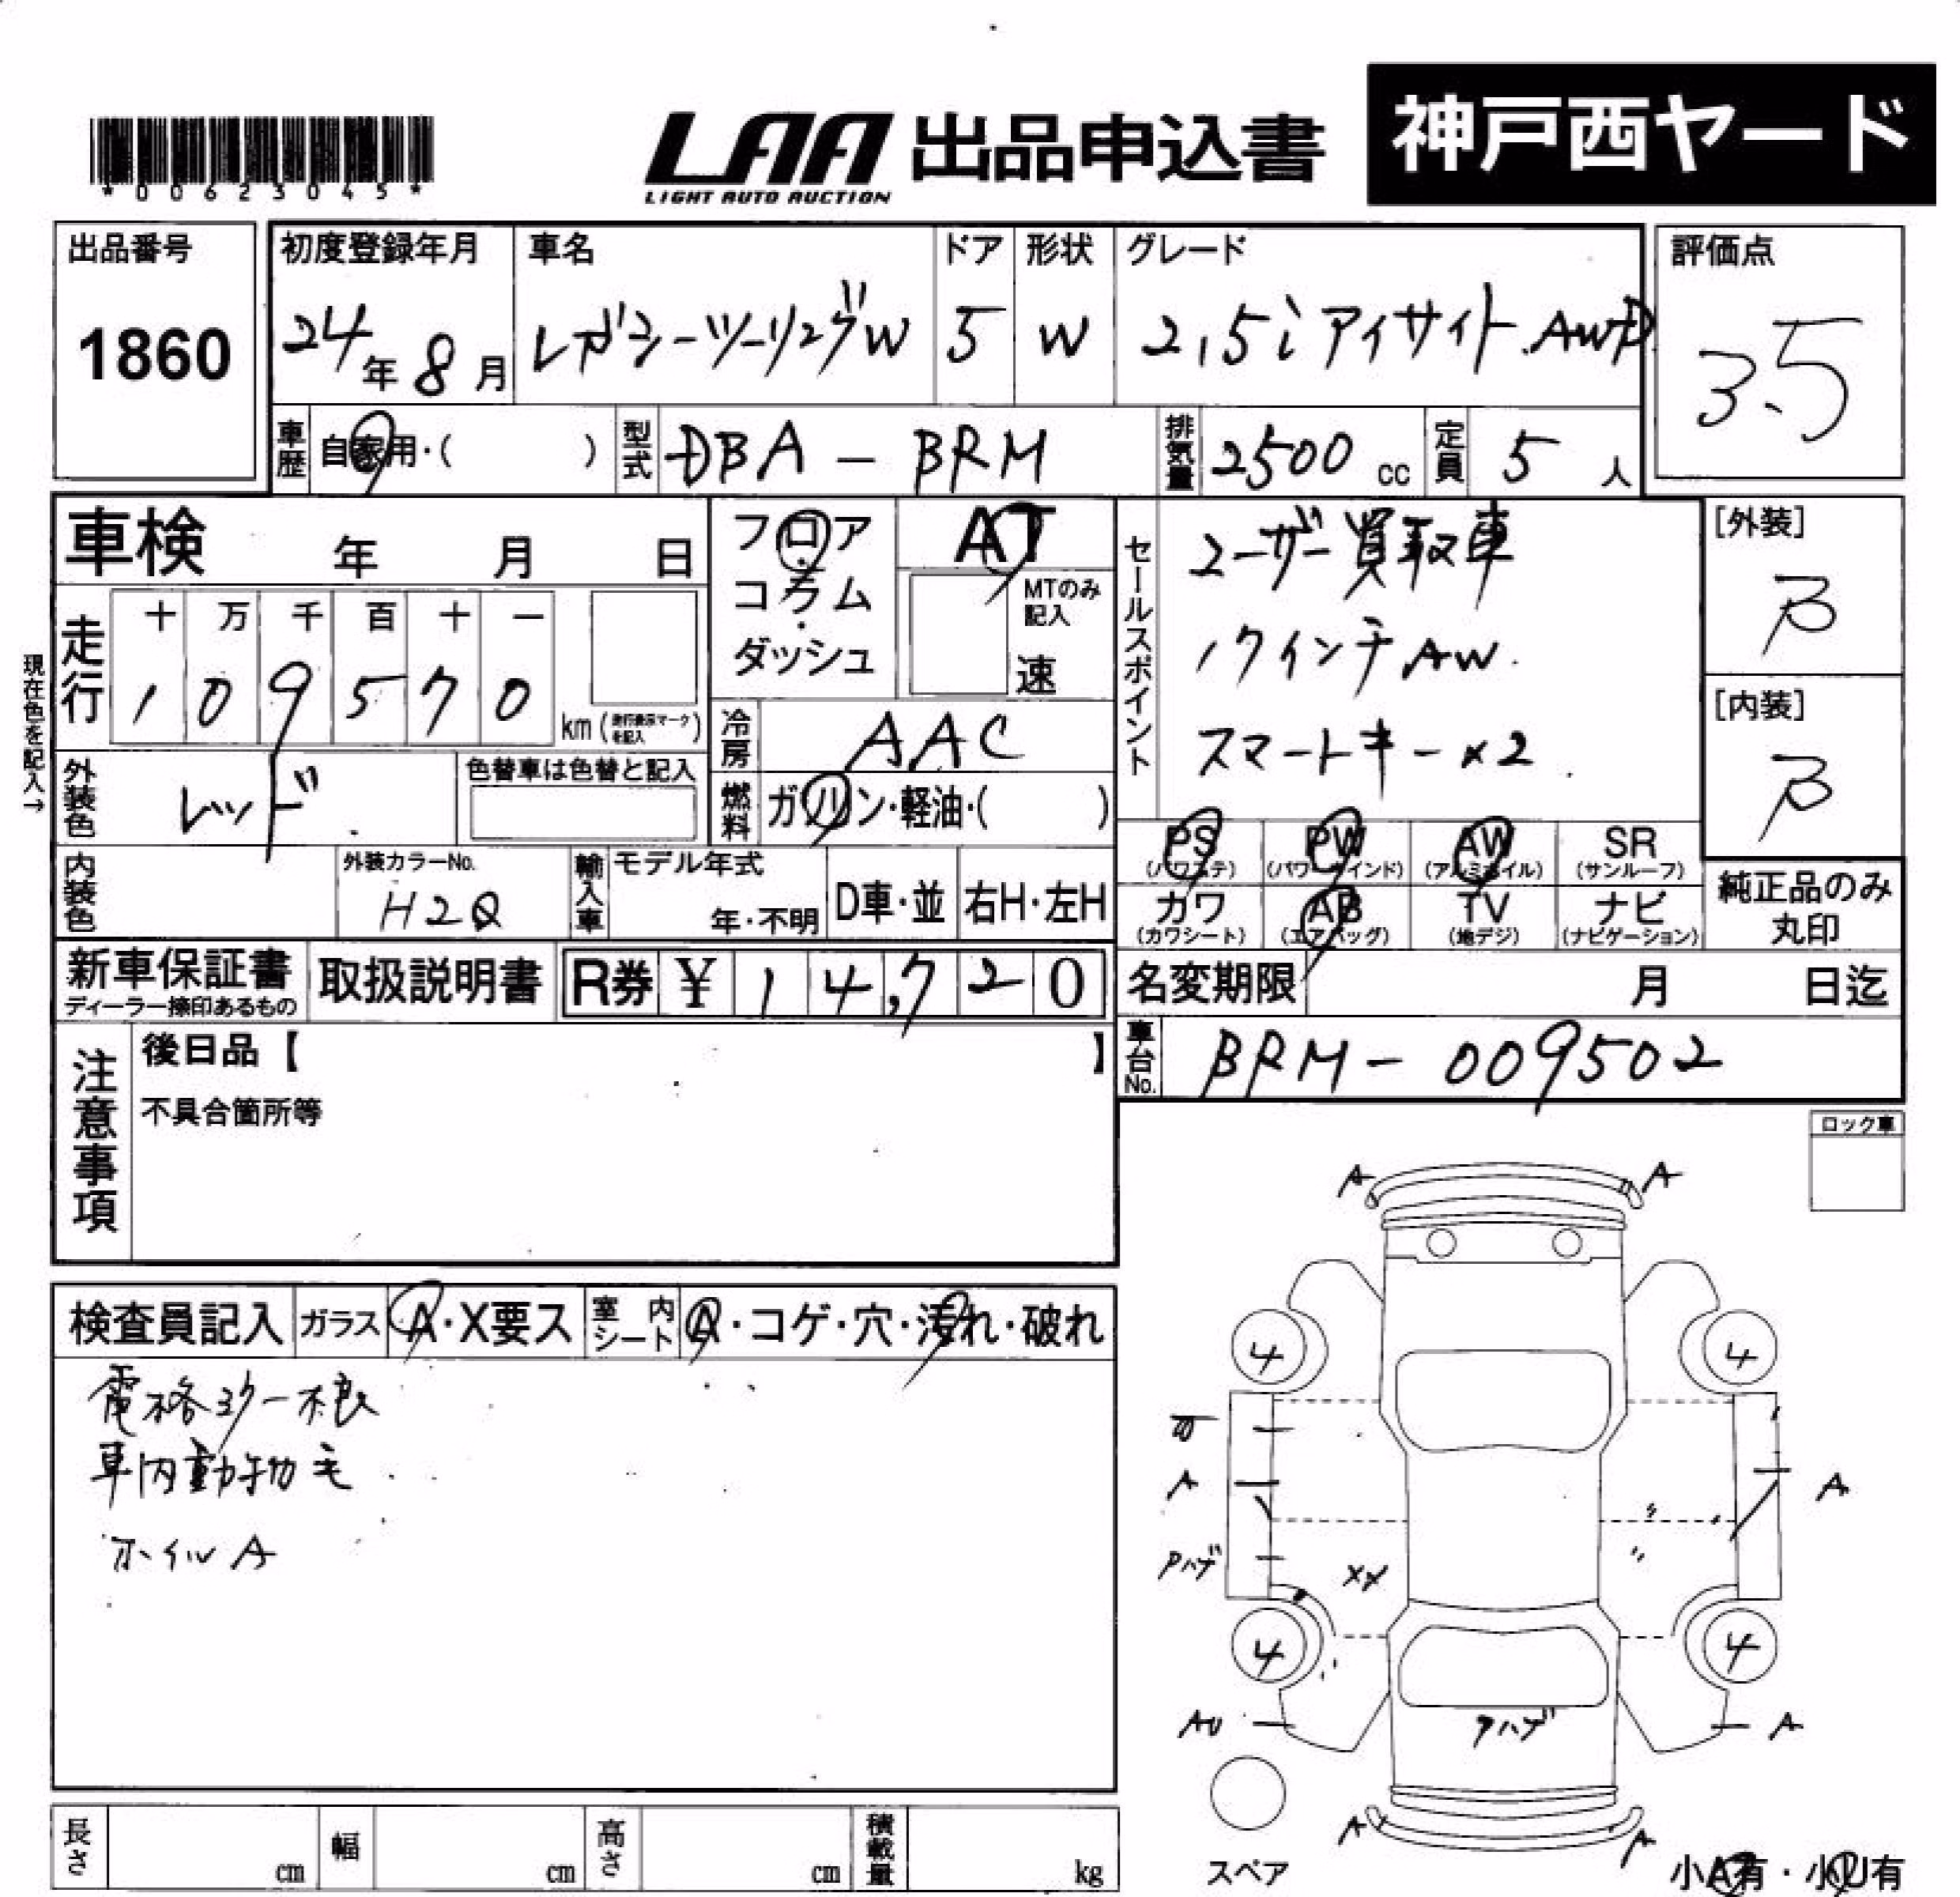 神戸西ヤード
LAA 出品申込書
LIGHT AUTO AUCTION
*00623045*
出品番号
1860
初度登録年月
24年8月
車名
レガシーツーリングW
ドア
5
形状
W
グレード
2.5i アイサイト.AWD
評価点
3.5
車歴
自家用・( )
型式
DBA-BRM
排気量
2500cc
定員
5人
車検 年 月 日
フロア・コラム・ダッシュ
AT
MTのみ記入
速
セールスポイント
ユーザー買取車
17インチAW.
スマートキー×2.
[外装]
B
[内装]
B
現在色を記入→
走行
十 万 千 百 十 一
1 0 9 5 7 0
km (走行表示マークを記入)
冷房
AAC
外装色
レッド
色替車は色替と記入
燃料
ガソリン・軽油・( )
PS (パワステ)
PW (パワーウインド)
AW (アルミホイル)
SR (サンルーフ)
カワ (カワシート)
AB (エアバッグ)
TV (地デジ)
ナビ (ナビゲーション)
純正品のみ丸印
内装色
外装カラーNo.
H2Q
輸入車
モデル年式
年・不明
D車・並
右H・左H
新車保証書
ディーラー捺印あるもの
取扱説明書
R券 ¥ 14,720
名変期限 月 日迄
車台No.
BRM-009502
注意事項
後日品【 】
不具合箇所等
ロック車
検査員記入
ガラス
A・X要ス
室内シート
A・コゲ・穴・汚れ・破れ
電格ミラー不良
車内動物毛
ホイルA
A A
4 4
A A
Pハゲ
XX
4 4
AU A
Pハゲ
A A
スペア
小A有・小U有
長さ cm
幅 cm
高さ cm
積載量 kg